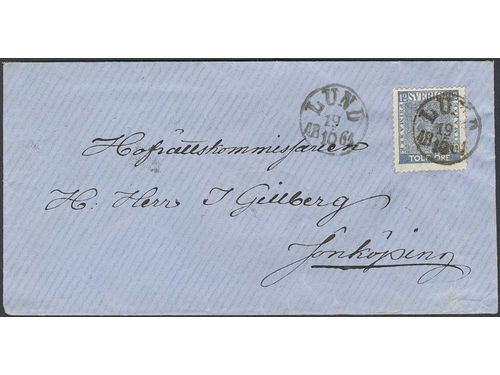 LUND
19
10 64
12 SVERIGE
LUND
19
10 64
TOLF ÖRE
Hofrättskommissarien
H. Herr J Gillberg
Jönköping